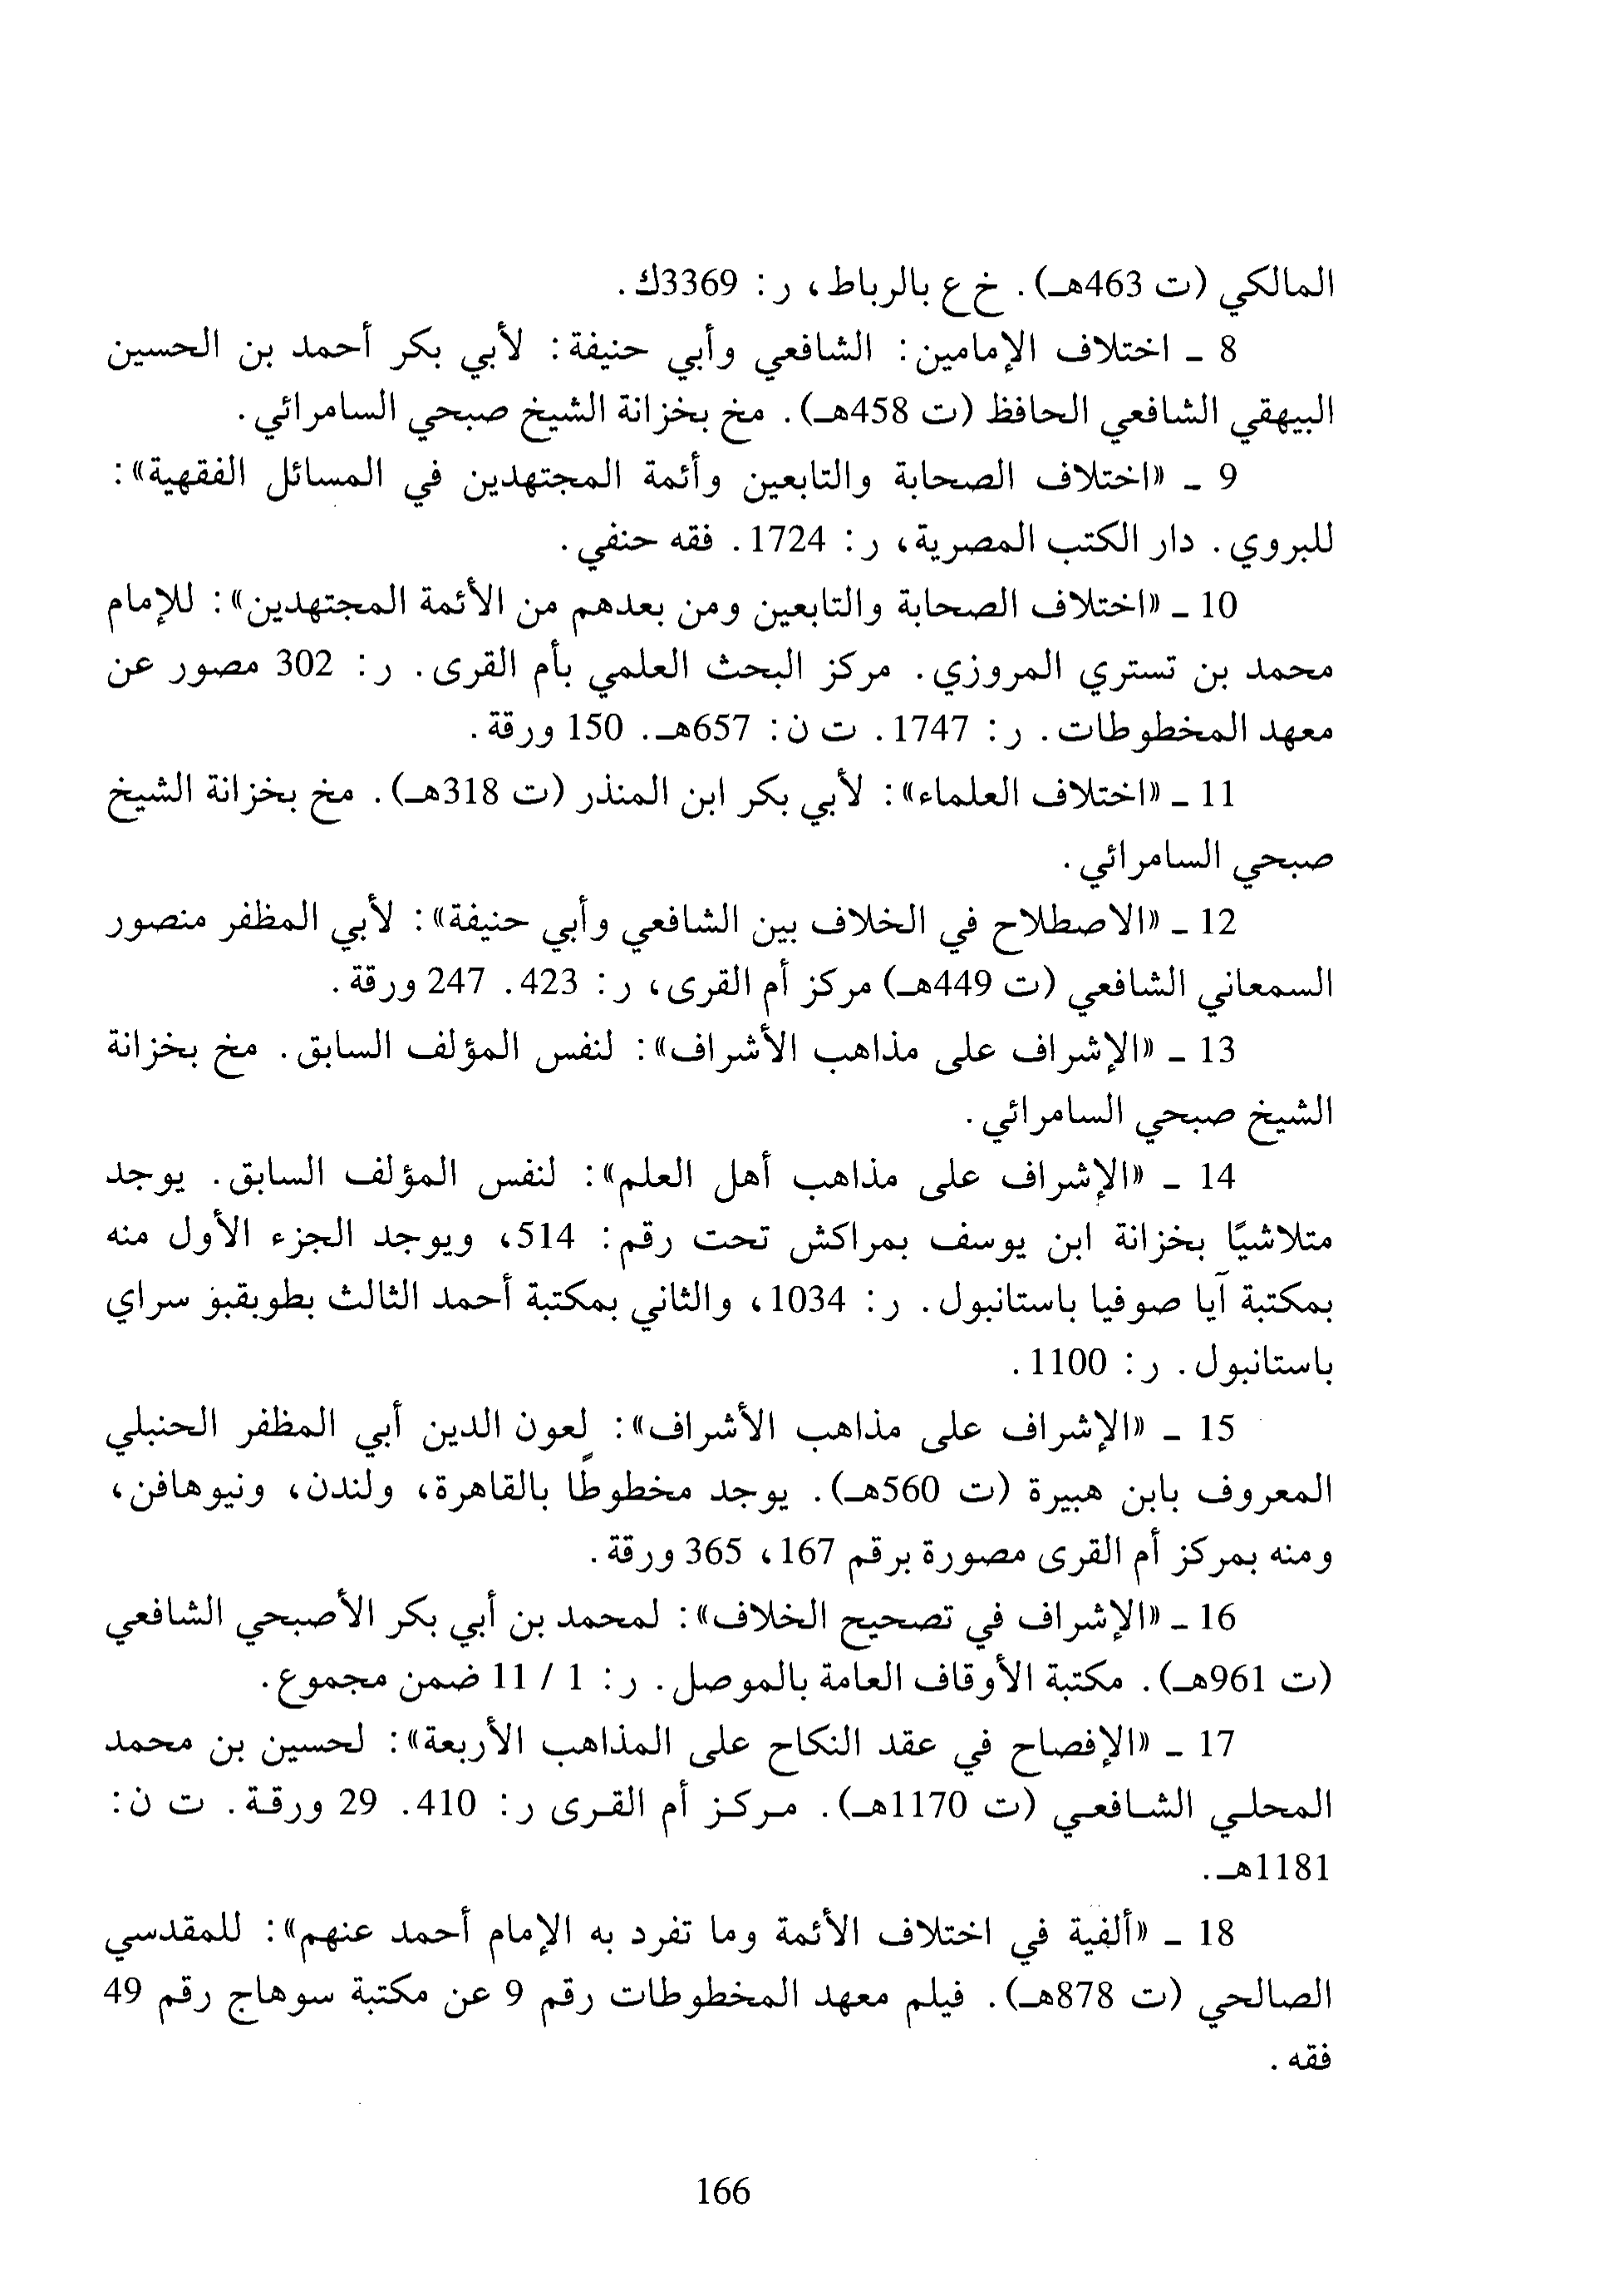 المالكي (ت 463هـ). خ ع بالرباط، ر: 3369ك.
8 ـ اختلاف الإمامين: الشافعي وأبي حنيفة: لأبي بكر أحمد بن الحسين
البيهقي الشافعي الحافظ (ت 458هـ). مخ بخزانة الشيخ صبحي السامرائي.
9 ـ «اختلاف الصحابة والتابعين وأئمة المجتهدين في المسائل الفقهية»:
للبروي. دار الكتب المصرية، ر: 1724. فقه حنفي.
10 ـ «اختلاف الصحابة والتابعين ومن بعدهم من الأئمة المجتهدين»: للإمام
محمد بن تستري المروزي. مركز البحث العلمي بأم القرى. ر: 302 مصور عن
معهد المخطوطات. ر: 1747. ت ن: 657هـ. 150 ورقة.
11 ـ «اختلاف العلماء»: لأبي بكر ابن المنذر (ت 318هـ). مخ بخزانة الشيخ
صبحي السامرائي.
12 ـ «الاصطلاح في الخلاف بين الشافعي وأبي حنيفة»: لأبي المظفر منصور
السمعاني الشافعي (ت 449هـ) مركز أم القرى، ر: 423. 247 ورقة.
13 ـ «الإشراف على مذاهب الأشراف»: لنفس المؤلف السابق. مخ بخزانة
الشيخ صبحي السامرائي.
14 ـ «الإشراف على مذاهب أهل العلم»: لنفس المؤلف السابق. يوجد
متلاشيًا بخزانة ابن يوسف بمراكش تحت رقم: 514، ويوجد الجزء الأول منه
بمكتبة آيا صوفيا باستانبول. ر: 1034، والثاني بمكتبة أحمد الثالث بطوبقبو سراي
باستانبول. ر: 1100.
15 ـ «الإشراف على مذاهب الأشراف»: لعون الدين أبي المظفر الحنبلي
المعروف بابن هبيرة (ت 560هـ). يوجد مخطوطًا بالقاهرة، ولندن، ونيوهافن،
ومنه بمركز أم القرى مصورة برقم 167، 365 ورقة.
16 ـ «الإشراف في تصحيح الخلاف»: لمحمد بن أبي بكر الأصبحي الشافعي
(ت 961هـ). مكتبة الأوقاف العامة بالموصل. ر: 1 / 11 ضمن مجموع.
17 ـ «الإفصاح في عقد النكاح على المذاهب الأربعة»: لحسين بن محمد
المحلي الشافعي (ت 1170هـ). مركز أم القرى ر: 410. 29 ورقة. ت ن:
1181هـ.
18 ـ «ألفية في اختلاف الأئمة وما تفرد به الإمام أحمد عنهم»: للمقدسي
الصالحي (ت 878هـ). فيلم معهد المخطوطات رقم 9 عن مكتبة سوهاج رقم 49
فقه.
166